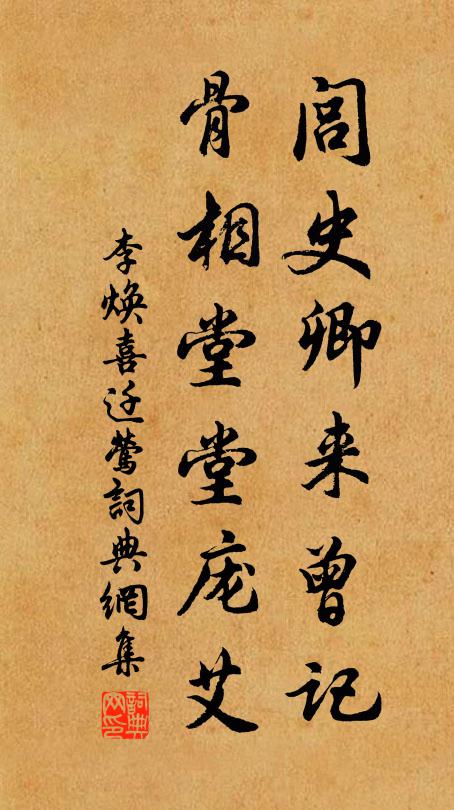 闾史卿来曾记
骨相堂堂庞艾
李焕喜迁莺詞典網集
詞典网印